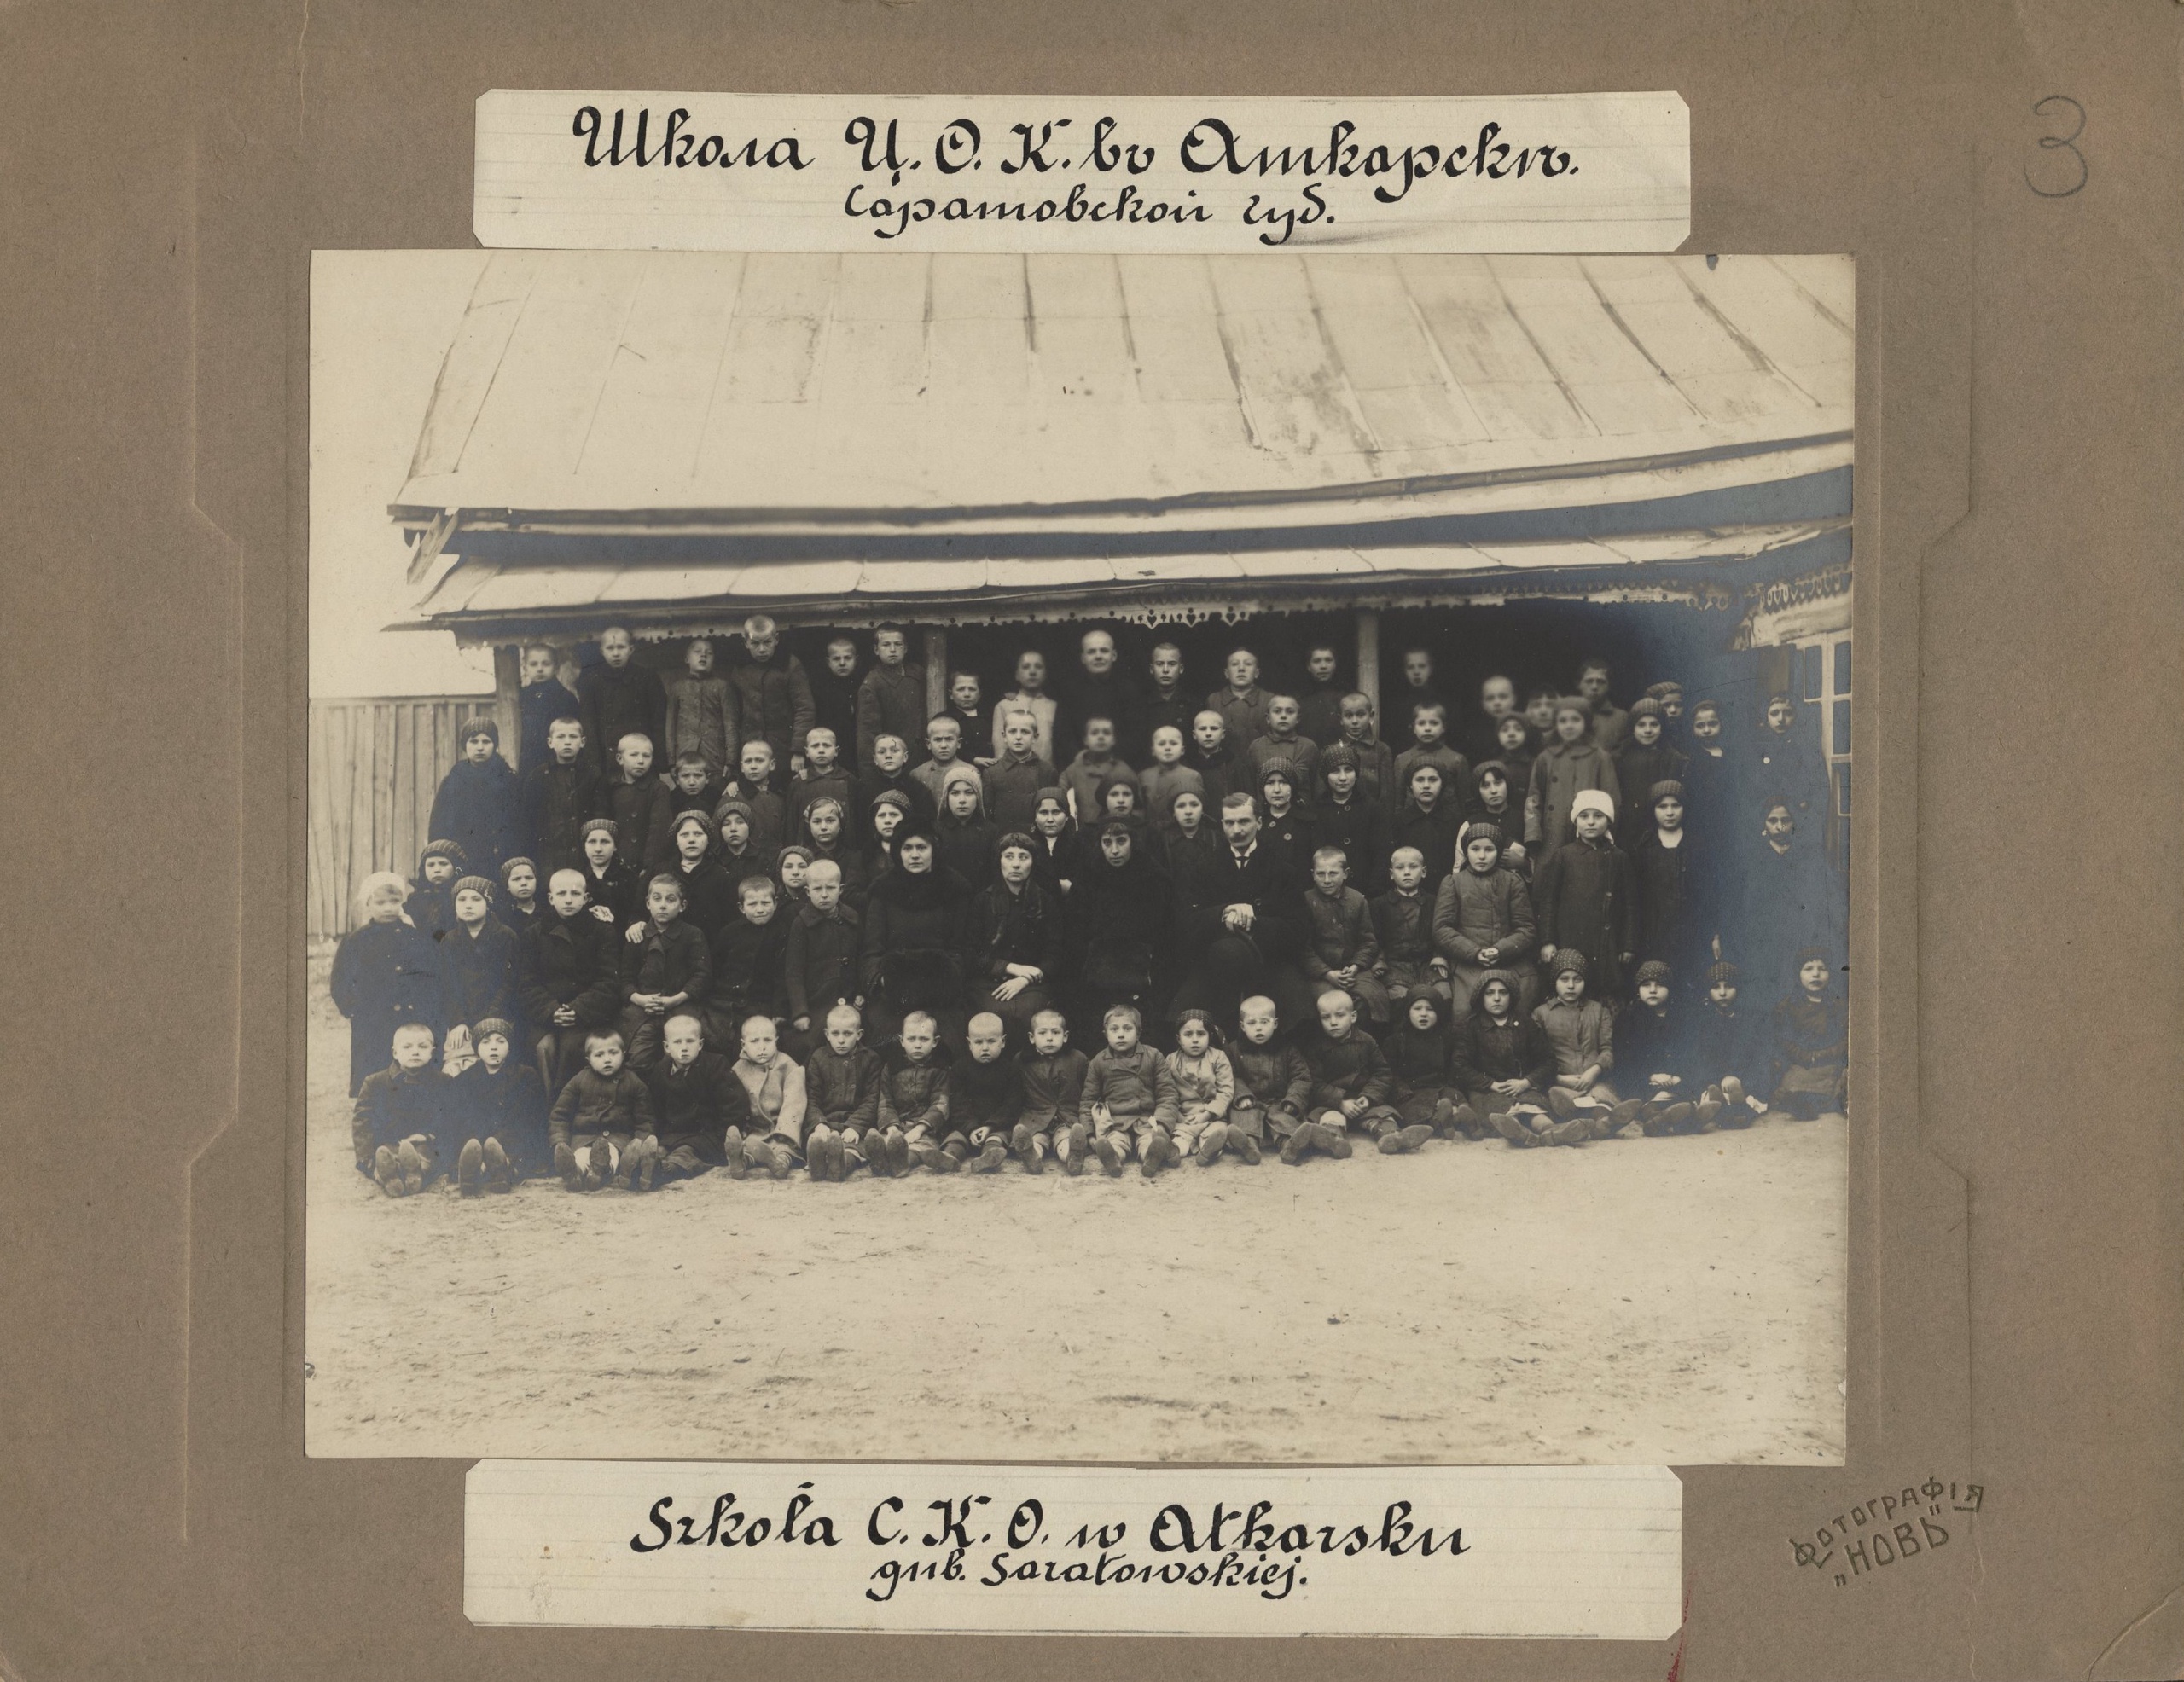 Школа Ц. О. К. въ Аткарскѣ.
Саратовской губ.
3
Szkoła C. K. O. w Atkarsku
gub. Saratowskiej.
ФОТОГРАФІЯ
„НОВЬ"